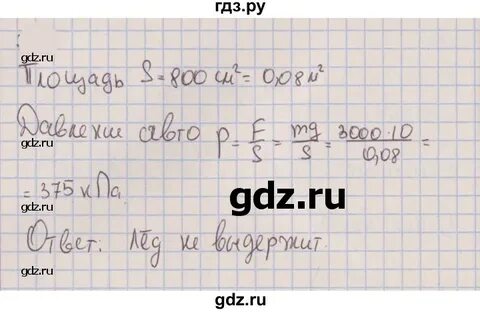 гдз.ру
gdz.ru gdz.ru
Площадь S = 800 см² = 0,08 м²
gdz.ru
Давление авто p = F/S = mg/S = 3000·10/0,08 =
= 375 кПа.
gdz.ru
Ответ: лёд не выдержит.
gdz.ru gdz.ru
gdz.ru